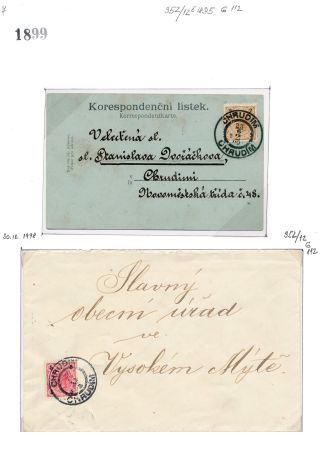 352/12 G 112
1899
Korespondenční lístek.
Korespondenzkarte.
CHRUDIM
CHRUDIM
Velectěná sl.
sl. Stanislava Dvořáčkova,
v
Chrudimi
Novoměstská třída č. 48.
352/12
G
112
Slavný
obecní úřad
ve
Vysokém Mýtě.
CHRUDIM
CHRUDIM